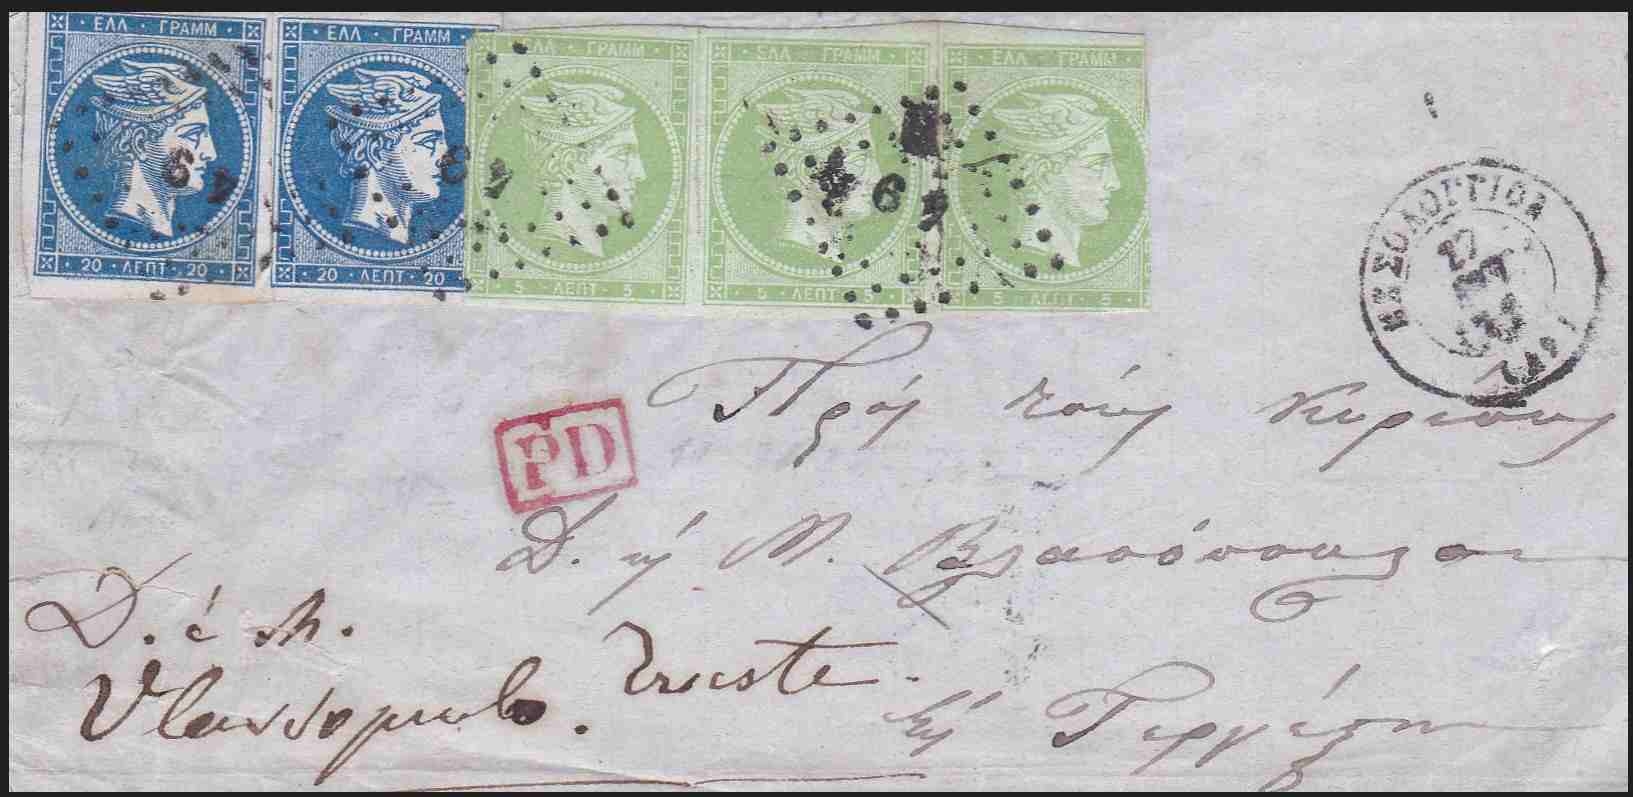 ΕΛΛ · ΓΡΑΜΜ
20 · ΛΕΠΤ · 20
ΕΛΛ · ΓΡΑΜΜ
20 · ΛΕΠΤ · 20
ΕΛΛ · ΓΡΑΜΜ
5 · ΛΕΠΤ · 5
ΕΛΛ · ΓΡΑΜΜ
5 · ΛΕΠΤ · 5
ΕΛΛ · ΓΡΑΜΜ
5 · ΛΕΠΤ · 5
ΜΕΣΟΛΟΓΓΙΟΝ
27
PD
Πρὸς τοὺς Κυρίους
Δ. κὴ Μ.
D. é M.
Trieste.
Τεργέστην